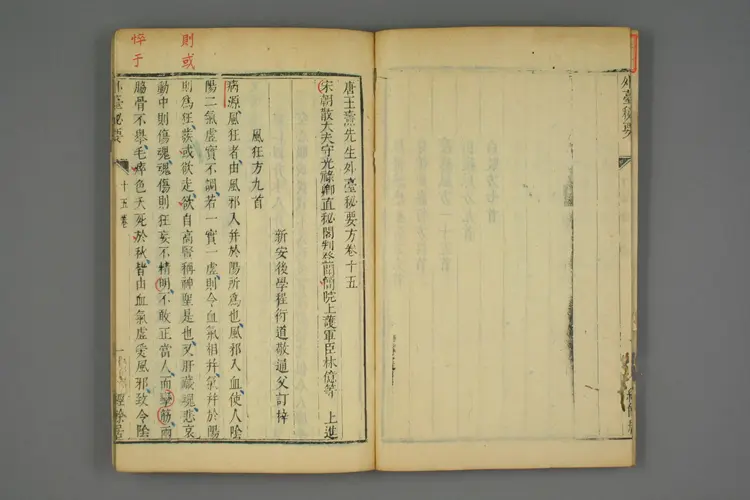 唐王燾先生外臺秘要方卷十五
宋朝散大夫守光祿卿直秘閣判登聞簡院上護軍臣林億等 上進
新安後學程衍道敬通父訂梓
風狂方九首
病源風狂者由風邪入并於陽所為也風邪入血使人陰
陽二氣虛實不調若一實一虛則令血氣相并氣并於陽
則為狂發或欲走欲自高賢稱神聖是也又肝藏魂悲哀
動中則傷魂魂傷則狂妄不精明不敢正當人而筋兩
脇骨不舉毛瘁色夭死於秋皆由血氣虛受風邪致令陰
外臺秘要
十五卷
一
經餘居
則或
悴于
外臺秘要